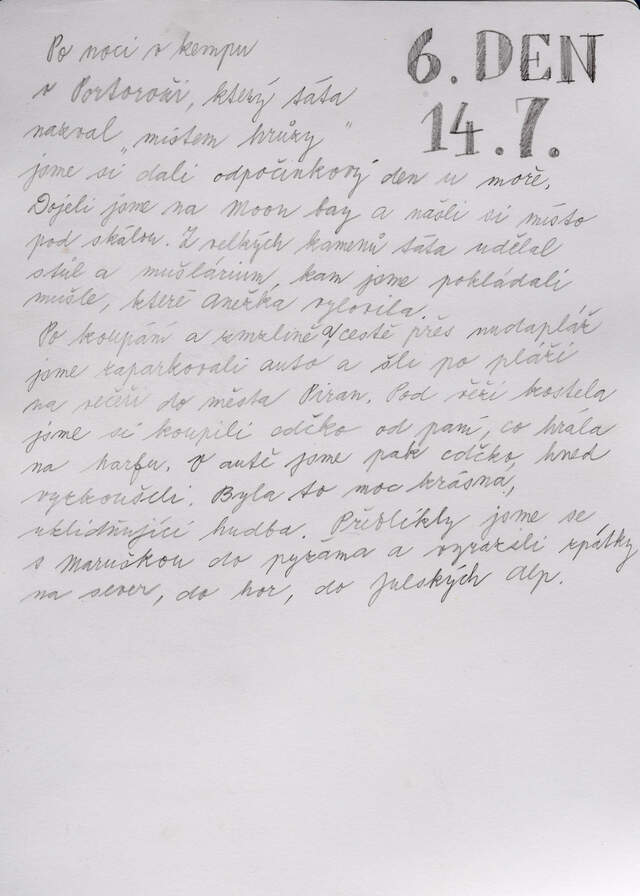 6. DEN
14.7.
Po noci v kempu
v Portoroži, který táta
nazval „místem hrůzy"
jsme si dali odpočinkový den u moře.
Dojeli jsme na Moon bay a našli si místo
pod skálou. Z velkých kamenů táta udělal
stůl a mušlárium, kam jsme pokládali
mušle, které Anežka vylovila.
Po koupání a zmrzlině a cestě přes nudapláž
jsme zaparkovali auto a šli po pláži
na večeři do města Piran. Pod věží kostela
jsme si koupili cdčko od paní, co hrála
na harfu. V autě jsme pak cdčko hned
vyzkoušeli. Byla to moc krásná,
uklidňující hudba. Převlíkly jsme se
s Maruškou do pyžama a vyrazili zpátky
na sever, do hor, do Julských Alp.